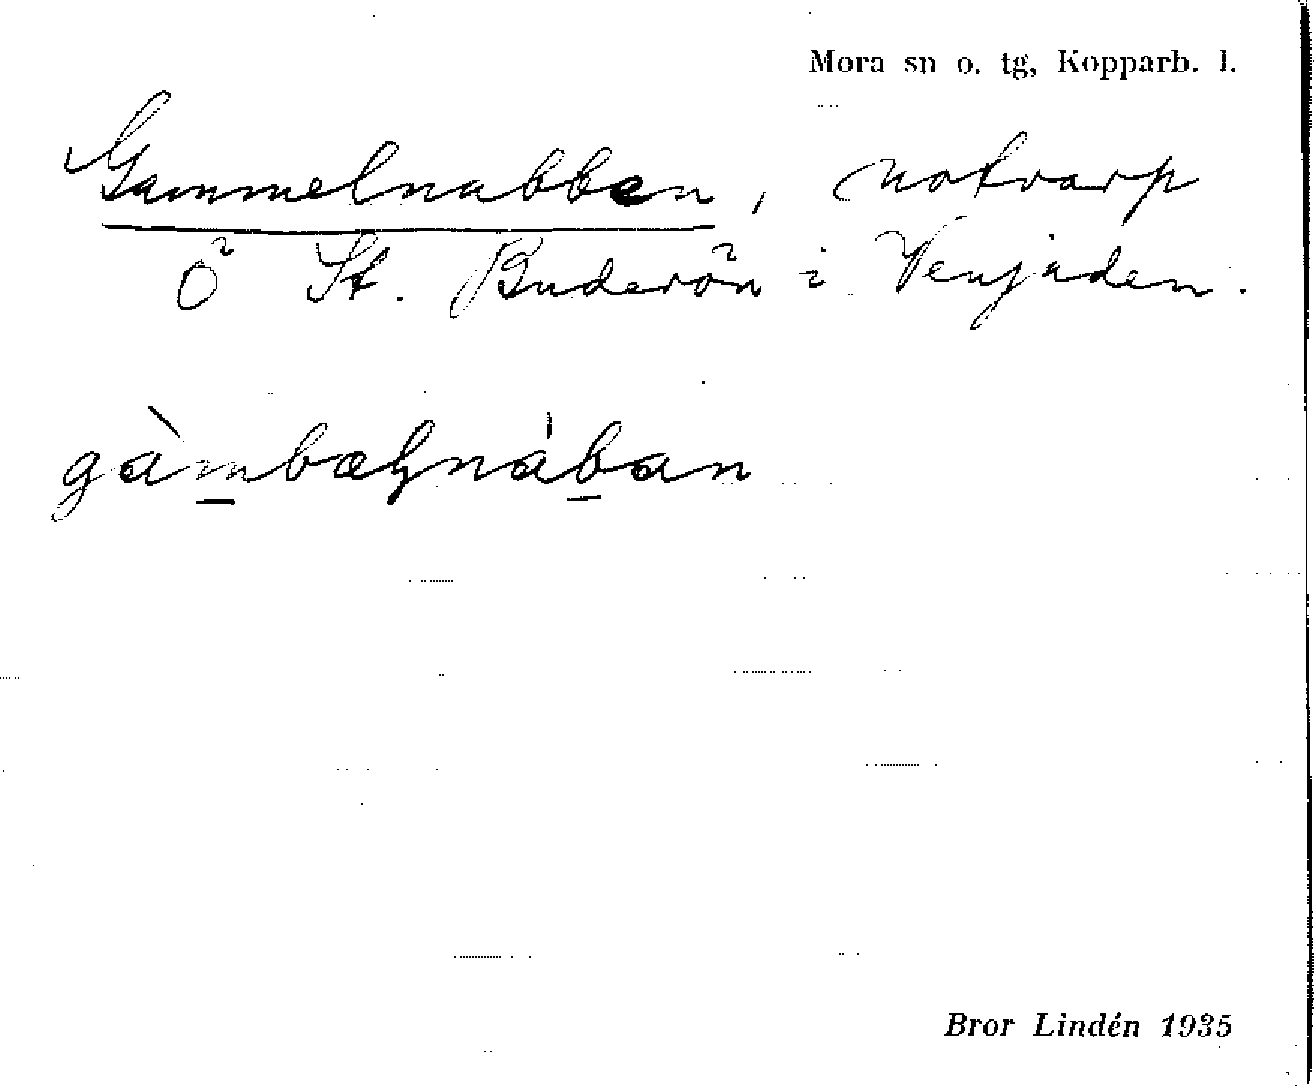 Mora sn o. tg, Kopparb. l.
Gammelnabben, notvarp
Ö St. Buderön i Venjaden.
gàmbæḷnàban
Bror Lindén 1935